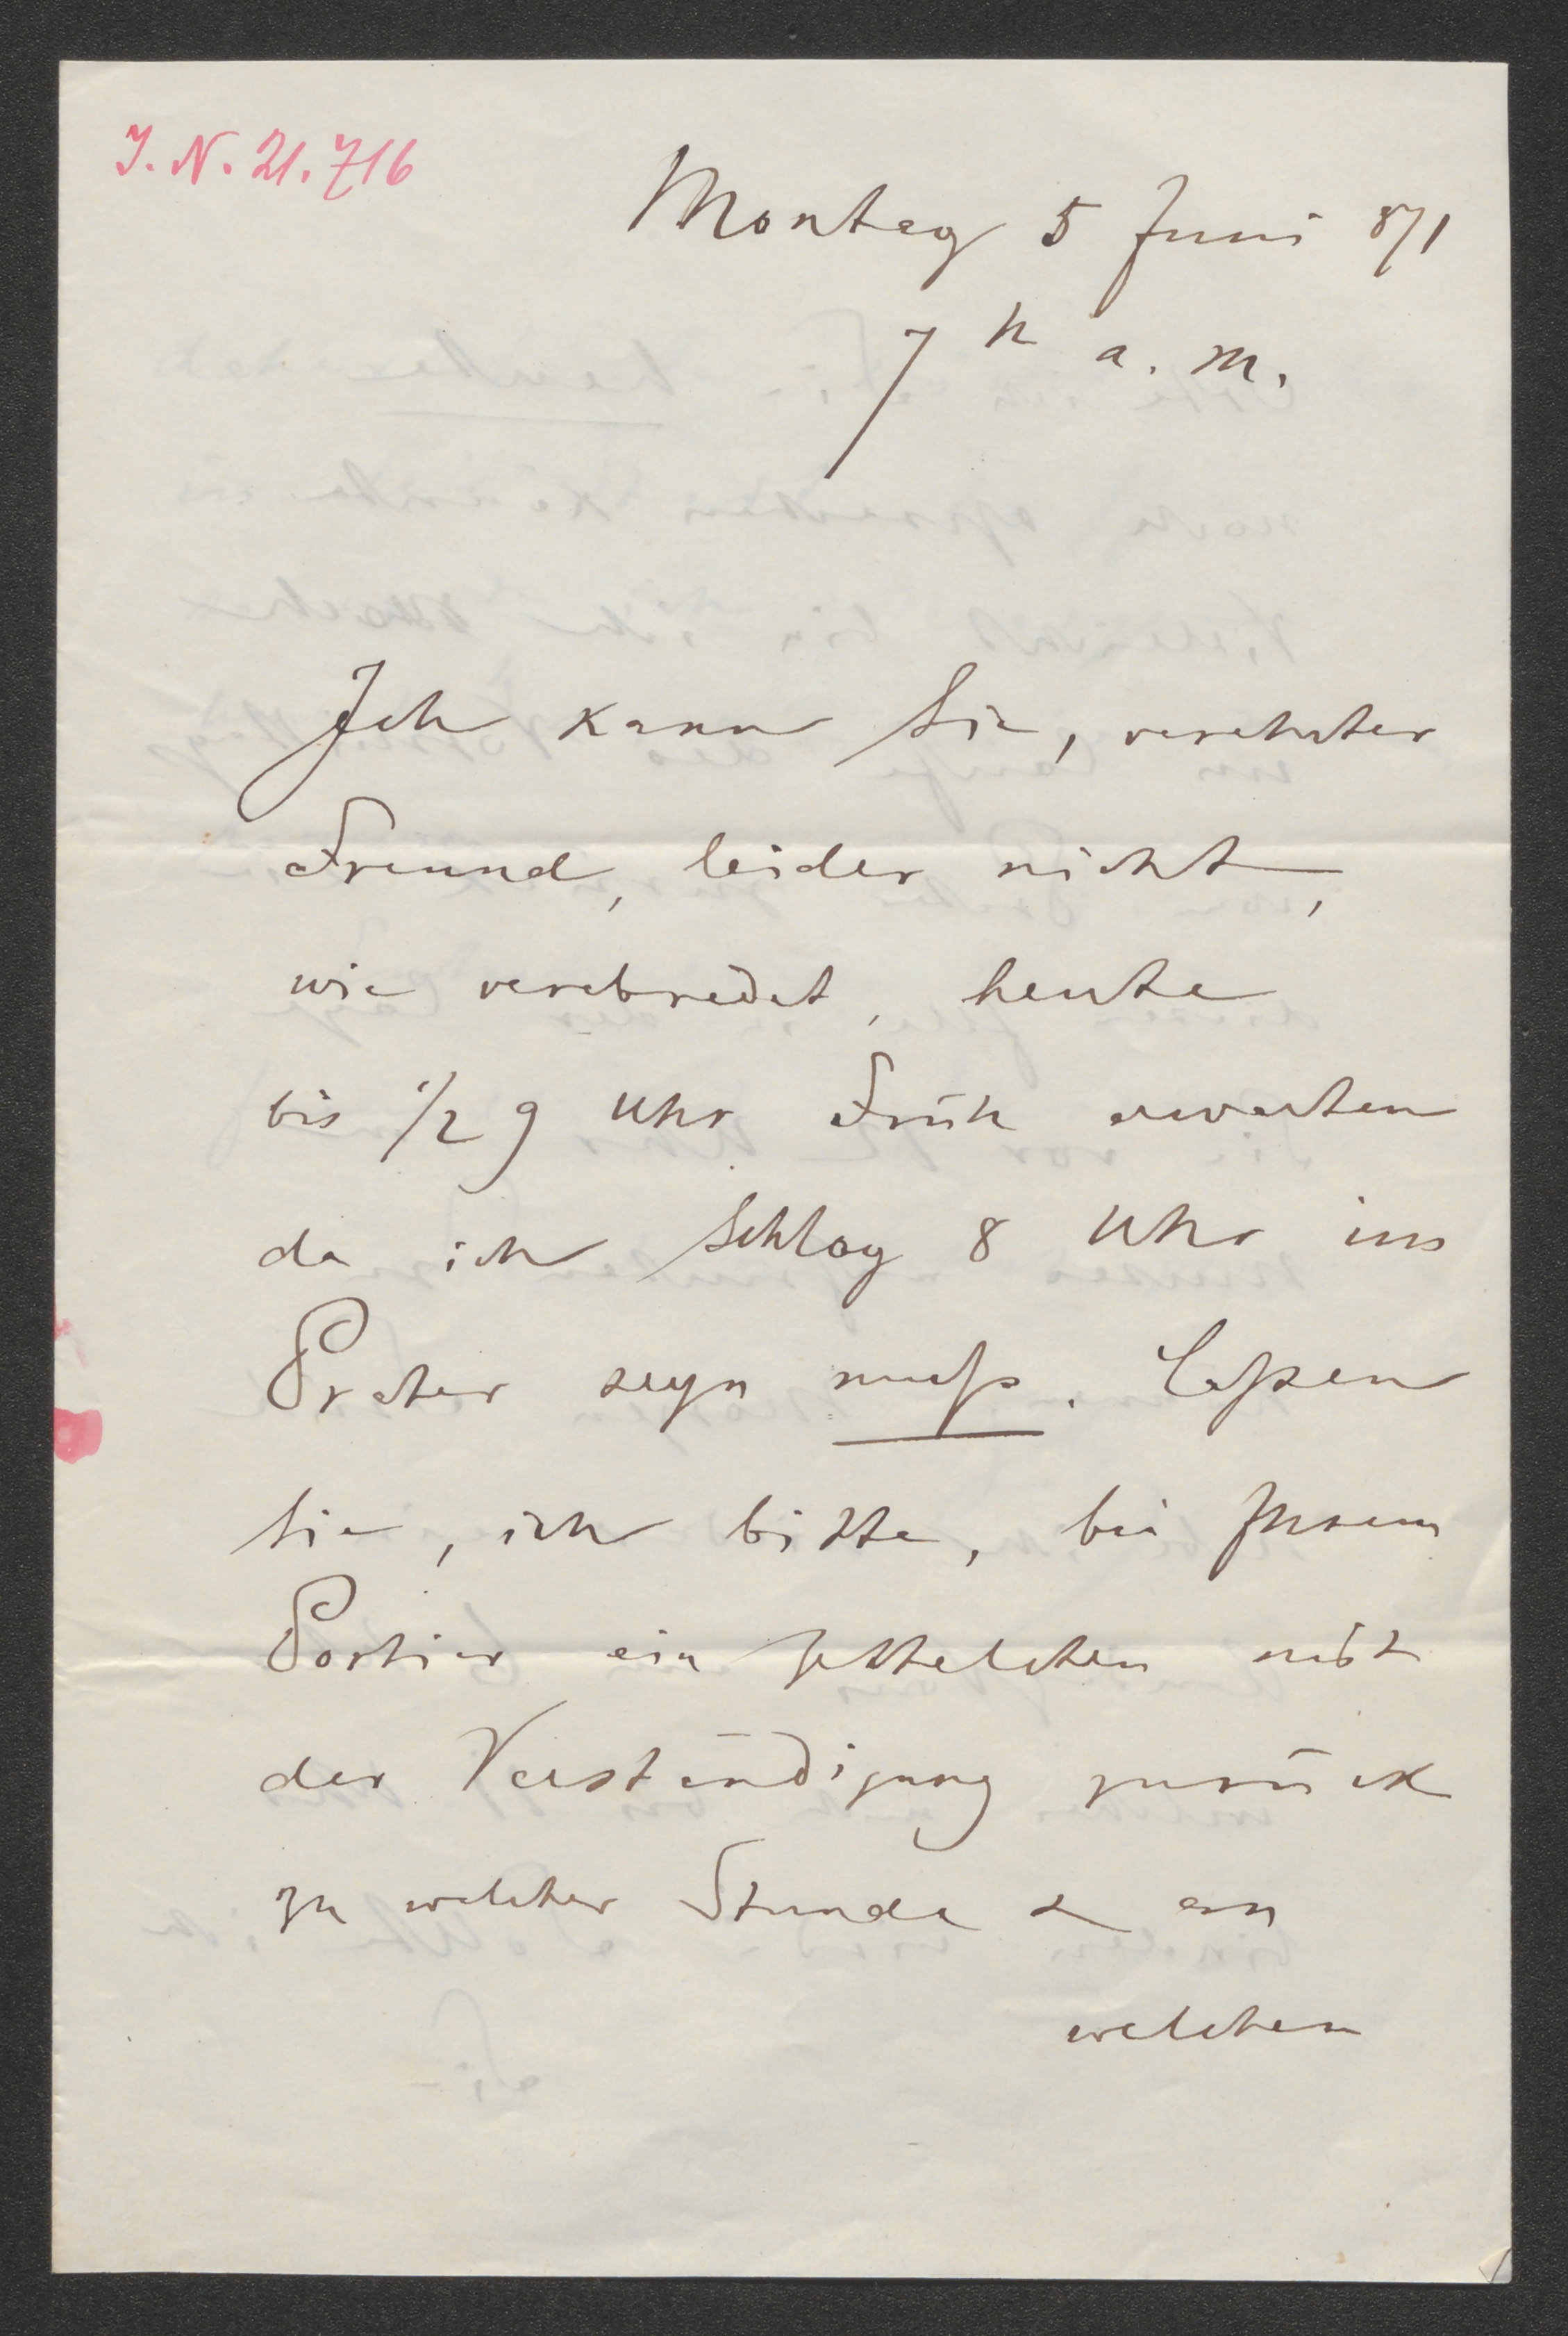 I. N. 21.716
Montag 5 Juni 871
7 h a. m.
Ich kann Sie, verehrter
Freund, leider nicht,
wie verabredet, heute
bis 1/2 9 Uhr Früh erwarten
da ich Schlag 8 Uhr im
Prater seyn muß. Laßen
Sie, ich bitte, bei Ihrem
Portier ein Zettelchen mit
der Verständigung zurück
zu welcher Stunde & an
welchem